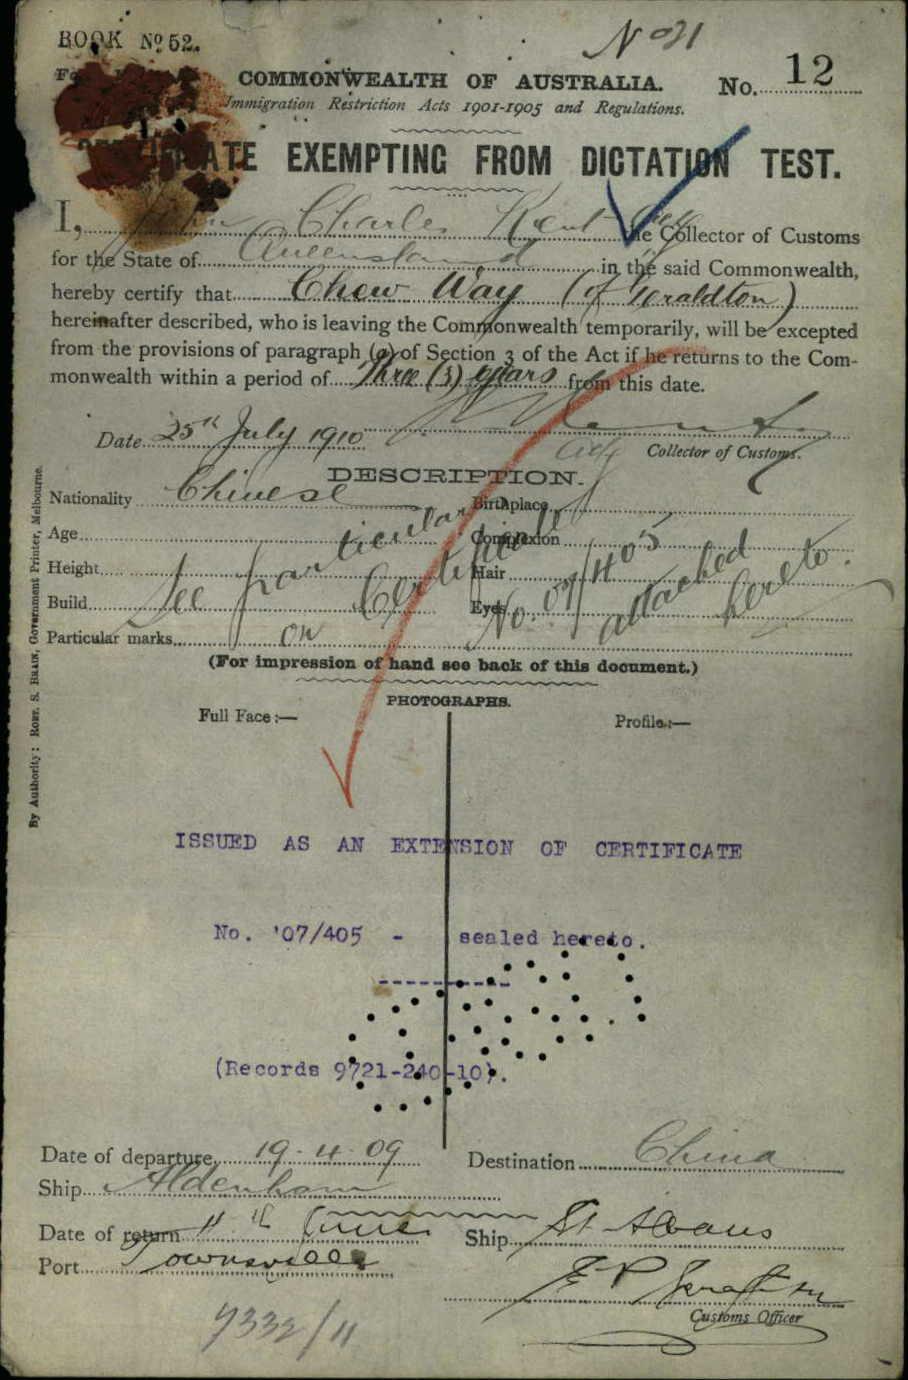 BOOK No 52.
No 21
COMMONWEALTH OF AUSTRALIA.
No. 12
Immigration Restriction Acts 1901-1905 and Regulations.
EXEMPTING FROM DICTATION TEST.
I, John Charles Kent the Collector of Customs
for the State of Queensland in the said Commonwealth,
hereby certify that Chew Way (of Geraldton)
hereinafter described, who is leaving the Commonwealth temporarily, will be excepted
from the provisions of paragraph (a) of Section 3 of the Act if he returns to the Com-
monwealth within a period of Three (3) years from this date.
Date 25th July 1910
Collector of Customs.
DESCRIPTION.
Nationality Chinese
Birthplace
Age
Complexion
Height
Hair
Build
Eyes
Particular marks
See particulars on Certificate No. 07/405 attached hereto.
(For impression of hand see back of this document.)
PHOTOGRAPHS.
Full Face:—
Profile:—
ISSUED AS AN EXTENSION OF CERTIFICATE
No. '07/405 - sealed hereto.
(Records 9721-240-10).
Date of departure 19-4-09
Destination China
Ship Aldenham
Date of return 11th June
Ship St Albans
Port Townsville
Customs Officer
9332/11
By Authority: ROBT. S. BRAIN, Government Printer, Melbourne.